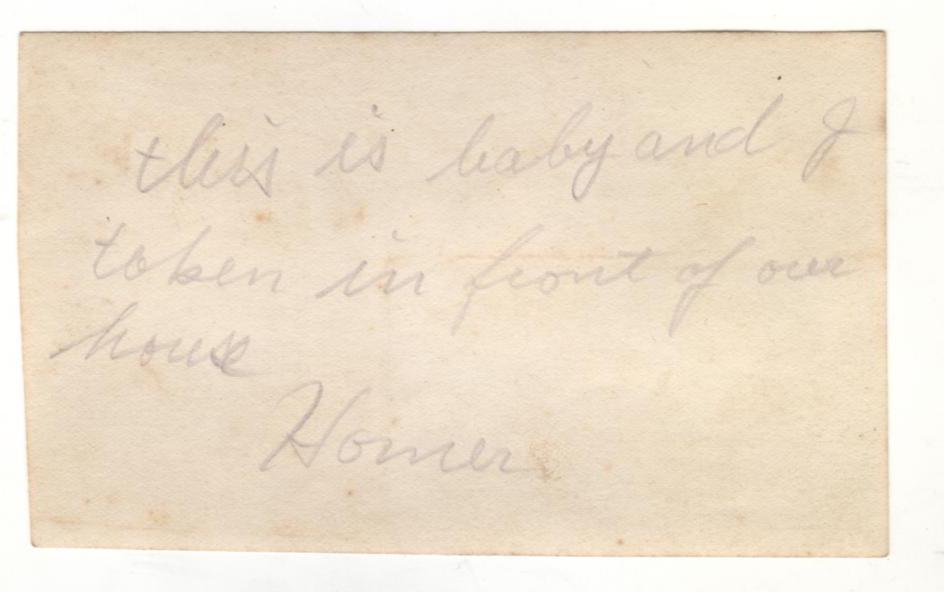 this is baby and I
taken in front of our
house
Homer